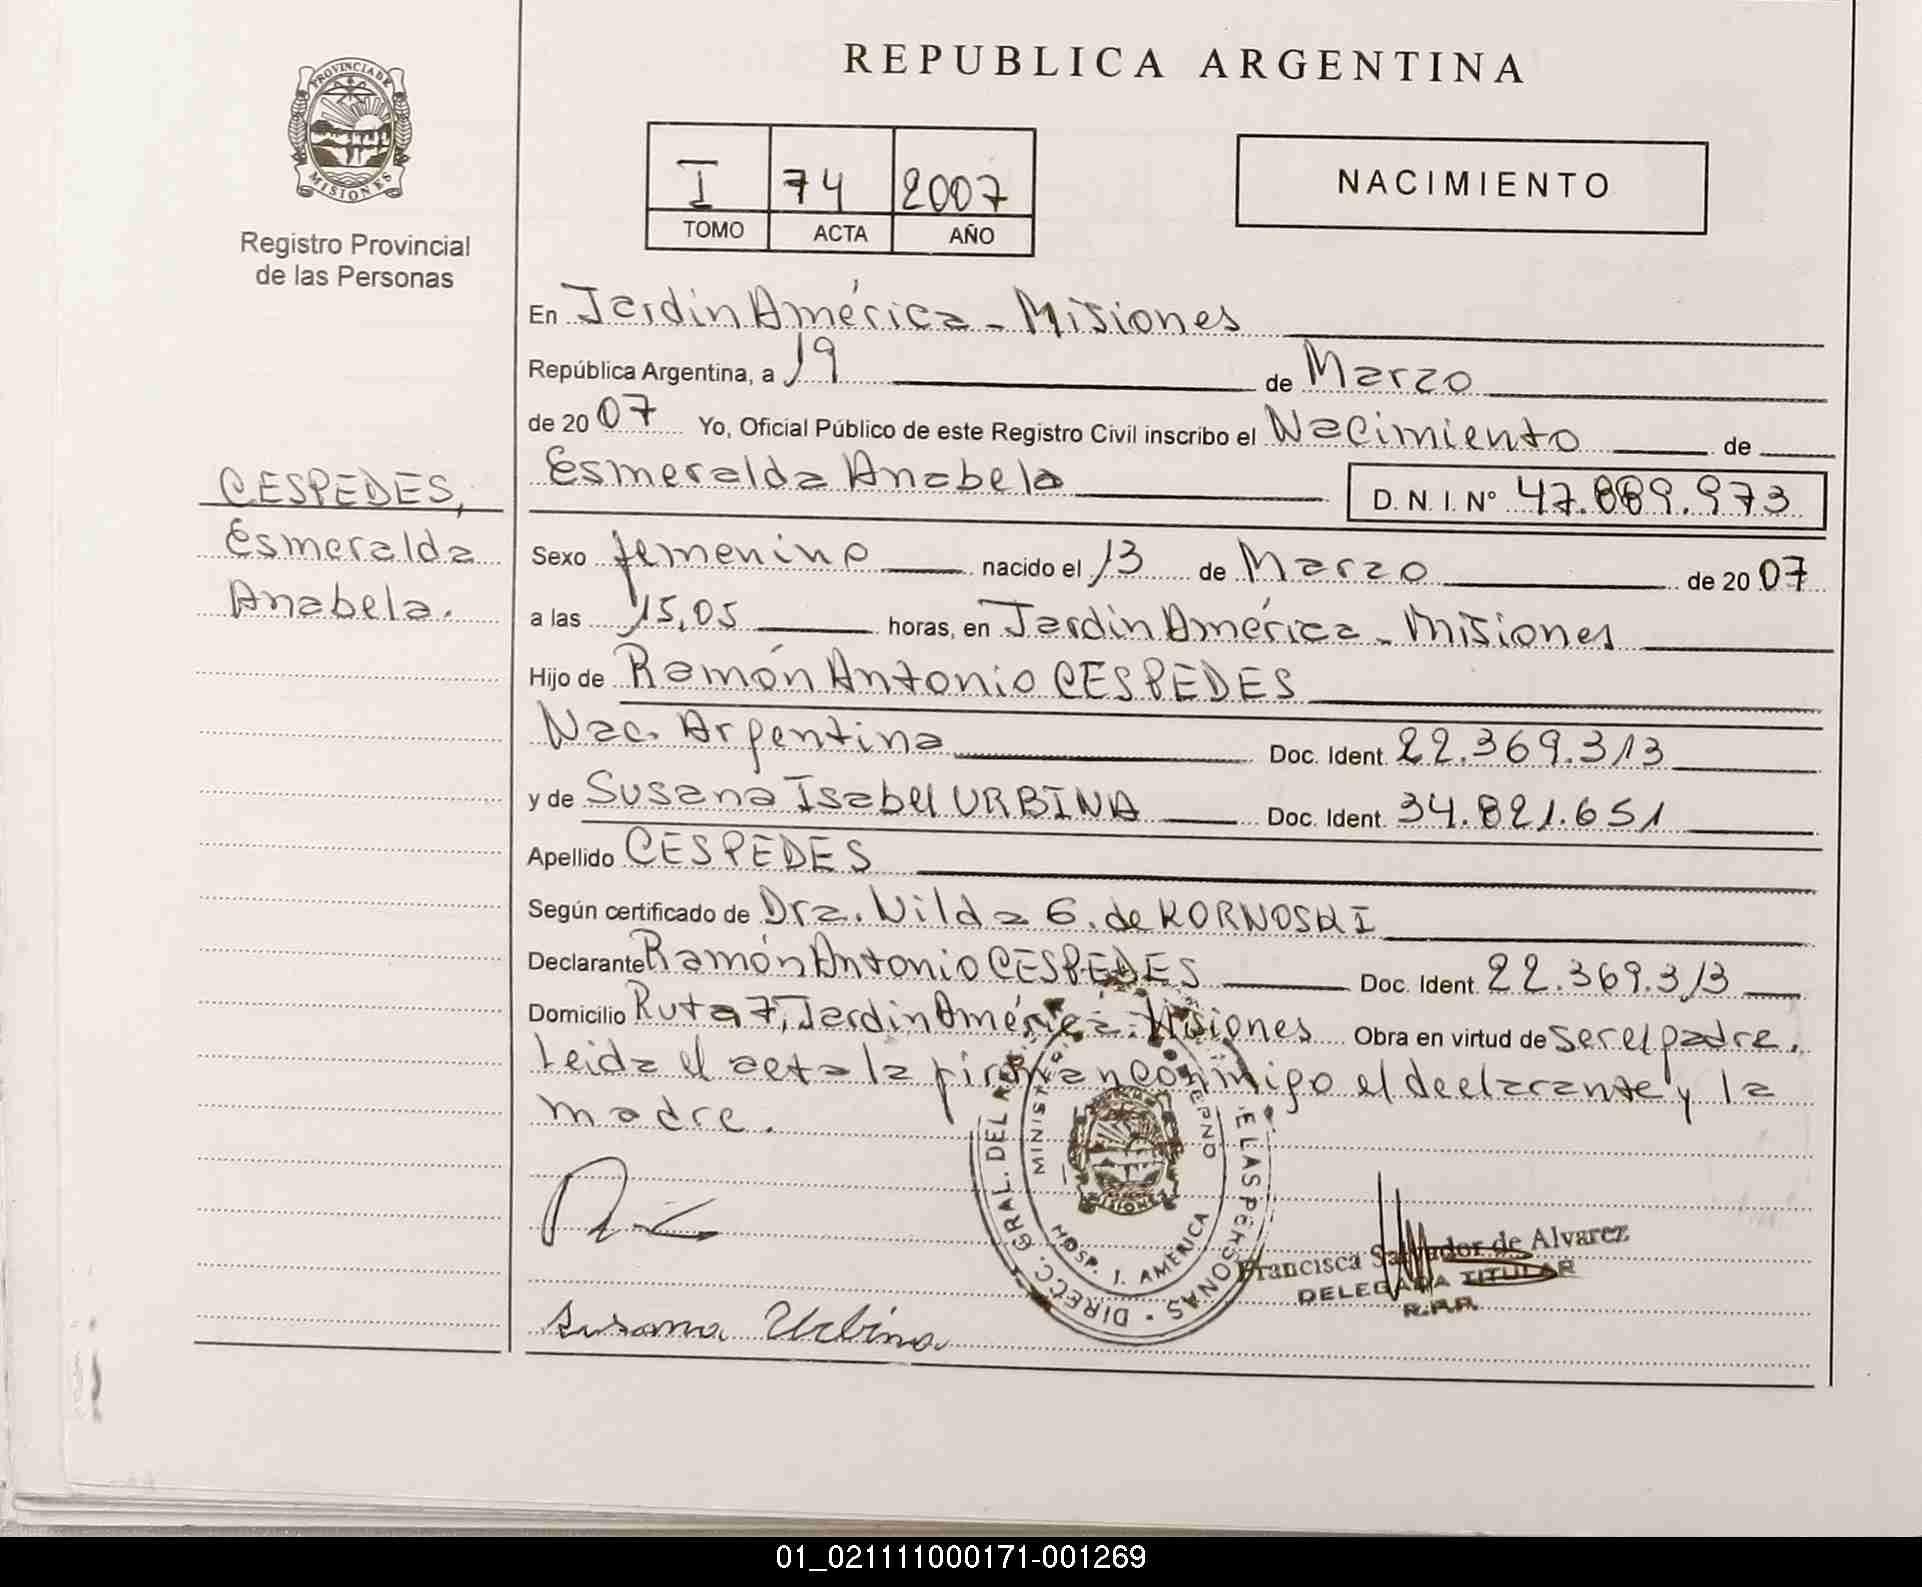 PROVINCIA DE
MISIONES
Registro Provincial
de las Personas
REPUBLICA ARGENTINA
I 74 2007
TOMO ACTA AÑO
NACIMIENTO
En Jardín América - Misiones
República Argentina, a 19 de Marzo
de 2007 Yo, Oficial Público de este Registro Civil inscribo el Nacimiento de
Esmeralda Anabela D. N. I. Nº 47.889.973
CESPEDES,
Esmeralda
Anabela.
Sexo femenino nacido el 13 de Marzo de 2007
a las 15,05 horas, en Jardín América - Misiones
Hijo de Ramón Antonio CESPEDES
Nac. Argentina Doc. Ident. 22.369.313
y de Susana Isabel URBINA Doc. Ident. 34.821.651
Apellido CESPEDES
Según certificado de Dra. Nilda G. de KORNOSKI
Declarante Ramón Antonio CESPEDES Doc. Ident. 22.369.313
Domicilio Ruta 7, Jardín América - Misiones Obra en virtud de ser el padre.
Leida el acta la firman conmigo el declarante y la
madre.
DIRECC. GRAL. DEL LAS PERSONAS
HOSP. J. AMERICA
MISIONES
Francisca Salvador de Alvarez
DELEGADA TITULAR
R.P.P.
Susana Urbina
01_021111000171-001269